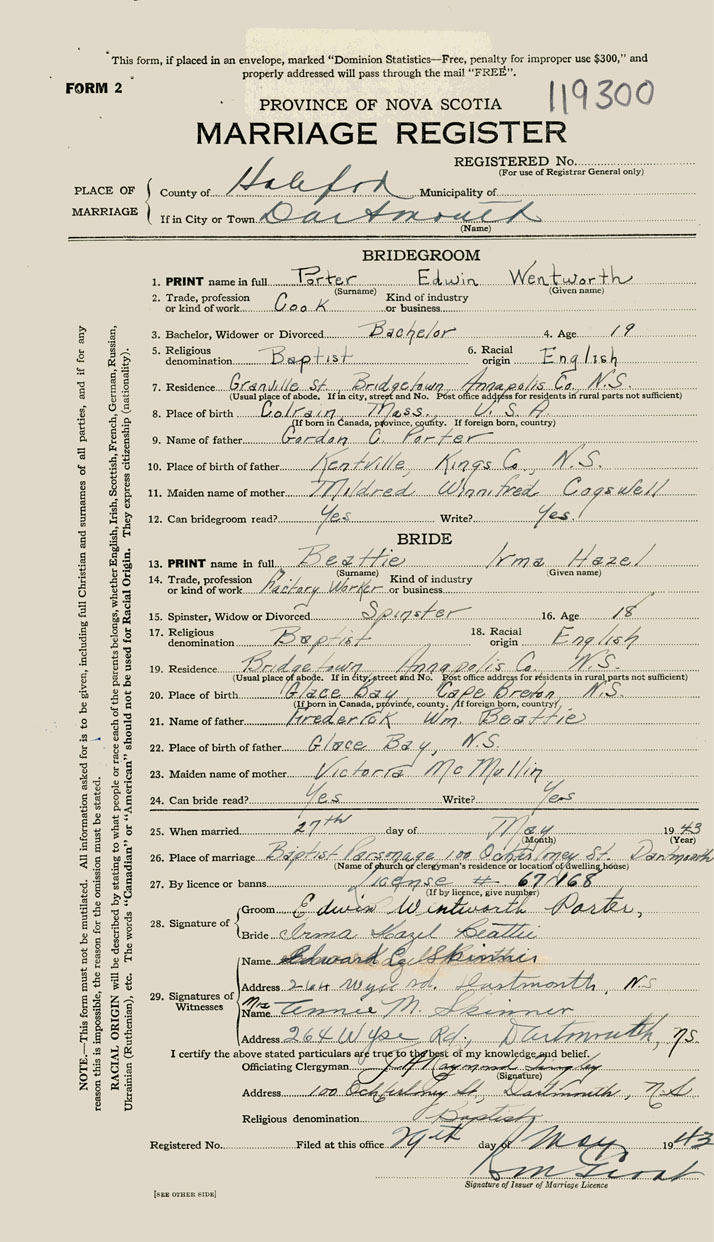 This form, if placed in an envelope, marked "Dominion Statistics—Free, penalty for improper use $300," and
properly addressed will pass through the mail "FREE".
FORM 2
119300
PROVINCE OF NOVA SCOTIA
MARRIAGE REGISTER
REGISTERED No.
(For use of Registrar General only)
PLACE OF MARRIAGE
County of Halifax Municipality of
If in City or Town Dartmouth
(Name)
BRIDEGROOM
1. PRINT name in full Porter Edwin Wentworth
(Surname) (Given name)
2. Trade, profession or kind of work Cook Kind of industry or business
3. Bachelor, Widower or Divorced Bachelor 4. Age 19
5. Religious denomination Baptist 6. Racial origin English
7. Residence Granville St. Bridgetown, Annapolis Co., N.S.
(Usual place of abode. If in city, street and No. Post office address for residents in rural parts not sufficient)
8. Place of birth Colrain, Mass., U.S.A.
(If born in Canada, province, county. If foreign born, country)
9. Name of father Gordon C. Porter
10. Place of birth of father Kentville, Kings Co., N.S.
11. Maiden name of mother Mildred Winnifred Cogswell
12. Can bridegroom read? Yes Write? Yes.
BRIDE
13. PRINT name in full Beattie Irma Hazel
(Surname) (Given name)
14. Trade, profession or kind of work Factory Worker Kind of industry or business
15. Spinster, Widow or Divorced Spinster 16. Age 18
17. Religious denomination Baptist 18. Racial origin English
19. Residence Bridgetown, Annapolis Co. N.S.
(Usual place of abode. If in city, street and No. Post office address for residents in rural parts not sufficient)
20. Place of birth Glace Bay, Cape Breton, N.S.
(If born in Canada, province, county. If foreign born, country)
21. Name of father Frederick Wm. Beattie
22. Place of birth of father Glace Bay, N.S.
23. Maiden name of mother Victorra McMullin
24. Can bride read? Yes Write? Yes
25. When married 27th day of May 1943
(Month) (Year)
26. Place of marriage Baptist Parsonage 100 Ochterloney St. Dartmouth
(Name of church or clergyman's residence or location of dwelling house)
27. By licence or banns License # 67168
(If by licence, give number)
28. Signature of
Groom Edwin Wentworth Porter,
Bride Irma Hazel Beattie
29. Signatures of Witnesses
Name Edward Skinner
Address 264 Wyse Rd. Dartmouth, N.S
Name Mrs Annie M. Skinner
Address 264 Wyse Rd., Dartmouth, N.S.
I certify the above stated particulars are true to the best of my knowledge and belief.
Officiating Clergyman Raymond
(Signature)
Address 100 Ochterloney St, Dartmouth, N.S
Religious denomination Baptist
Registered No. Filed at this office 29th day of May 1943
Signature of Issuer of Marriage Licence
[SEE OTHER SIDE]
NOTE.—This form must not be mutilated. All information asked for is to be given, including full Christian and surnames of all parties, and if for any
reason this is impossible, the reason for the omission must be stated.
RACIAL ORIGIN will be described by stating to what people or race each of the parents belongs, whether English, Irish, Scottish, French, German, Russian,
Ukrainian (Ruthenian), etc. The words "Canadian" or "American" should not be used for Racial Origin. They express citizenship (nationality).